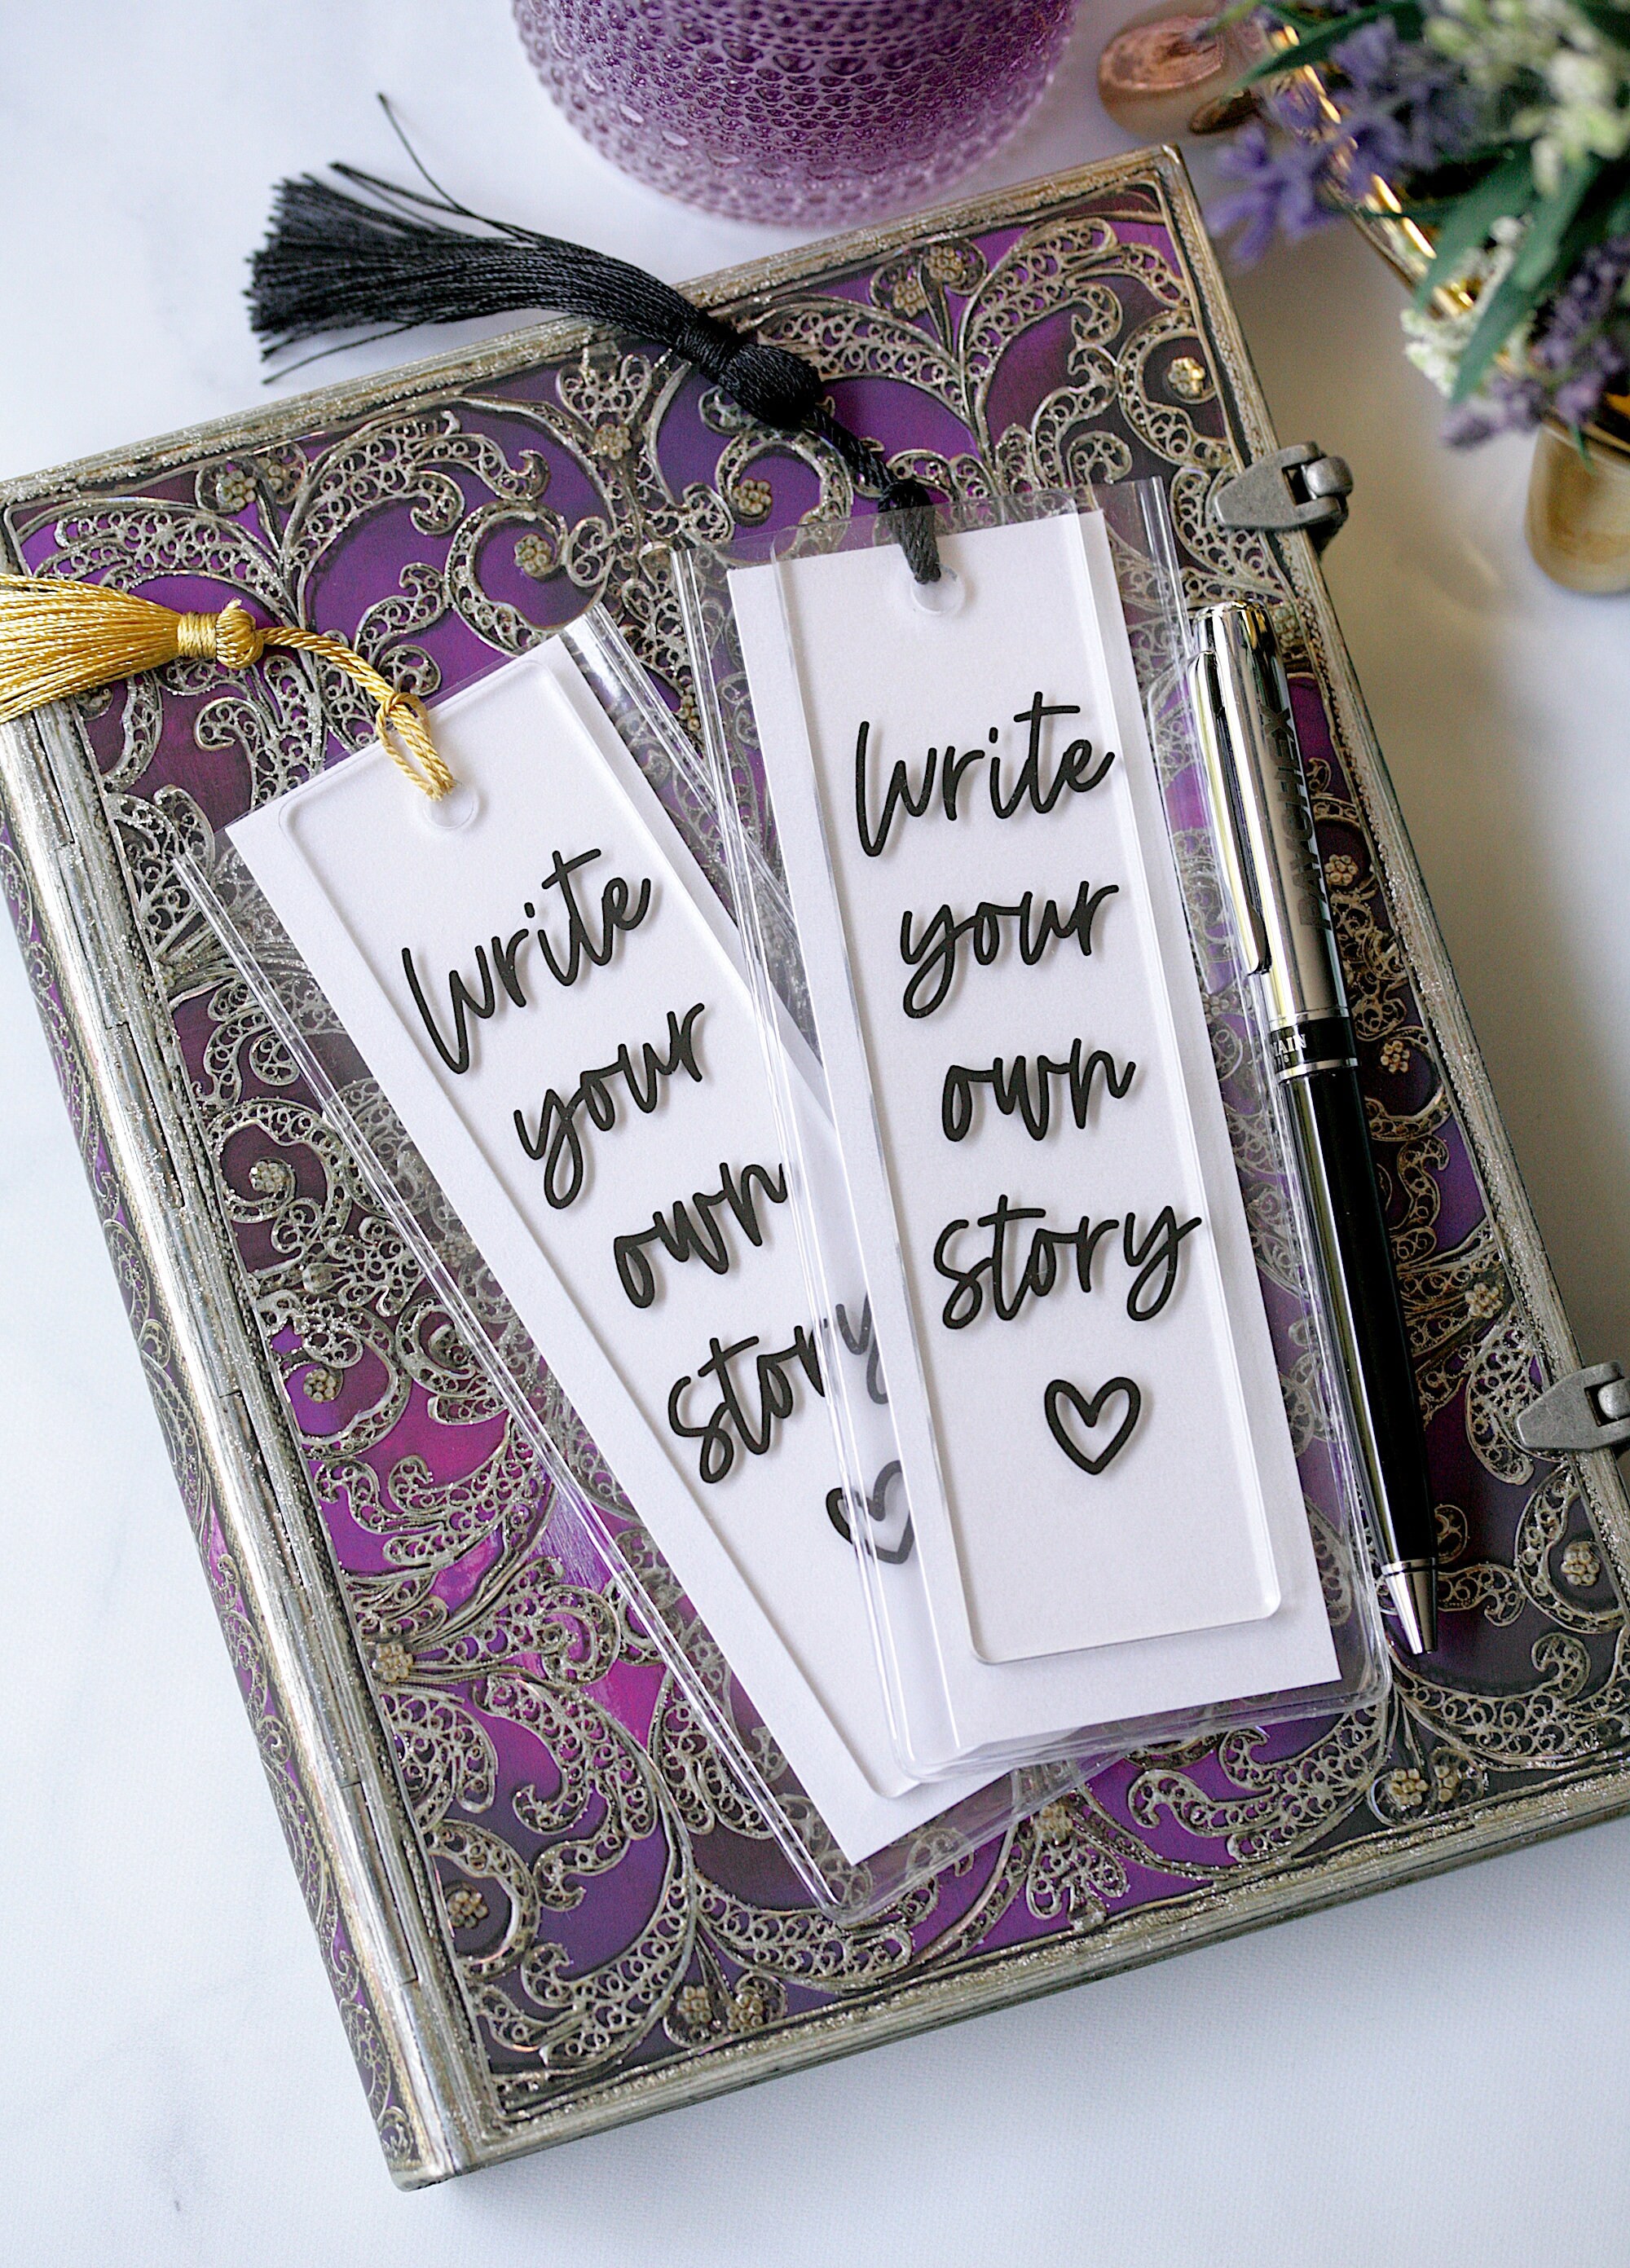 write
your
own
story
write
your
own
story
PAYCHEX